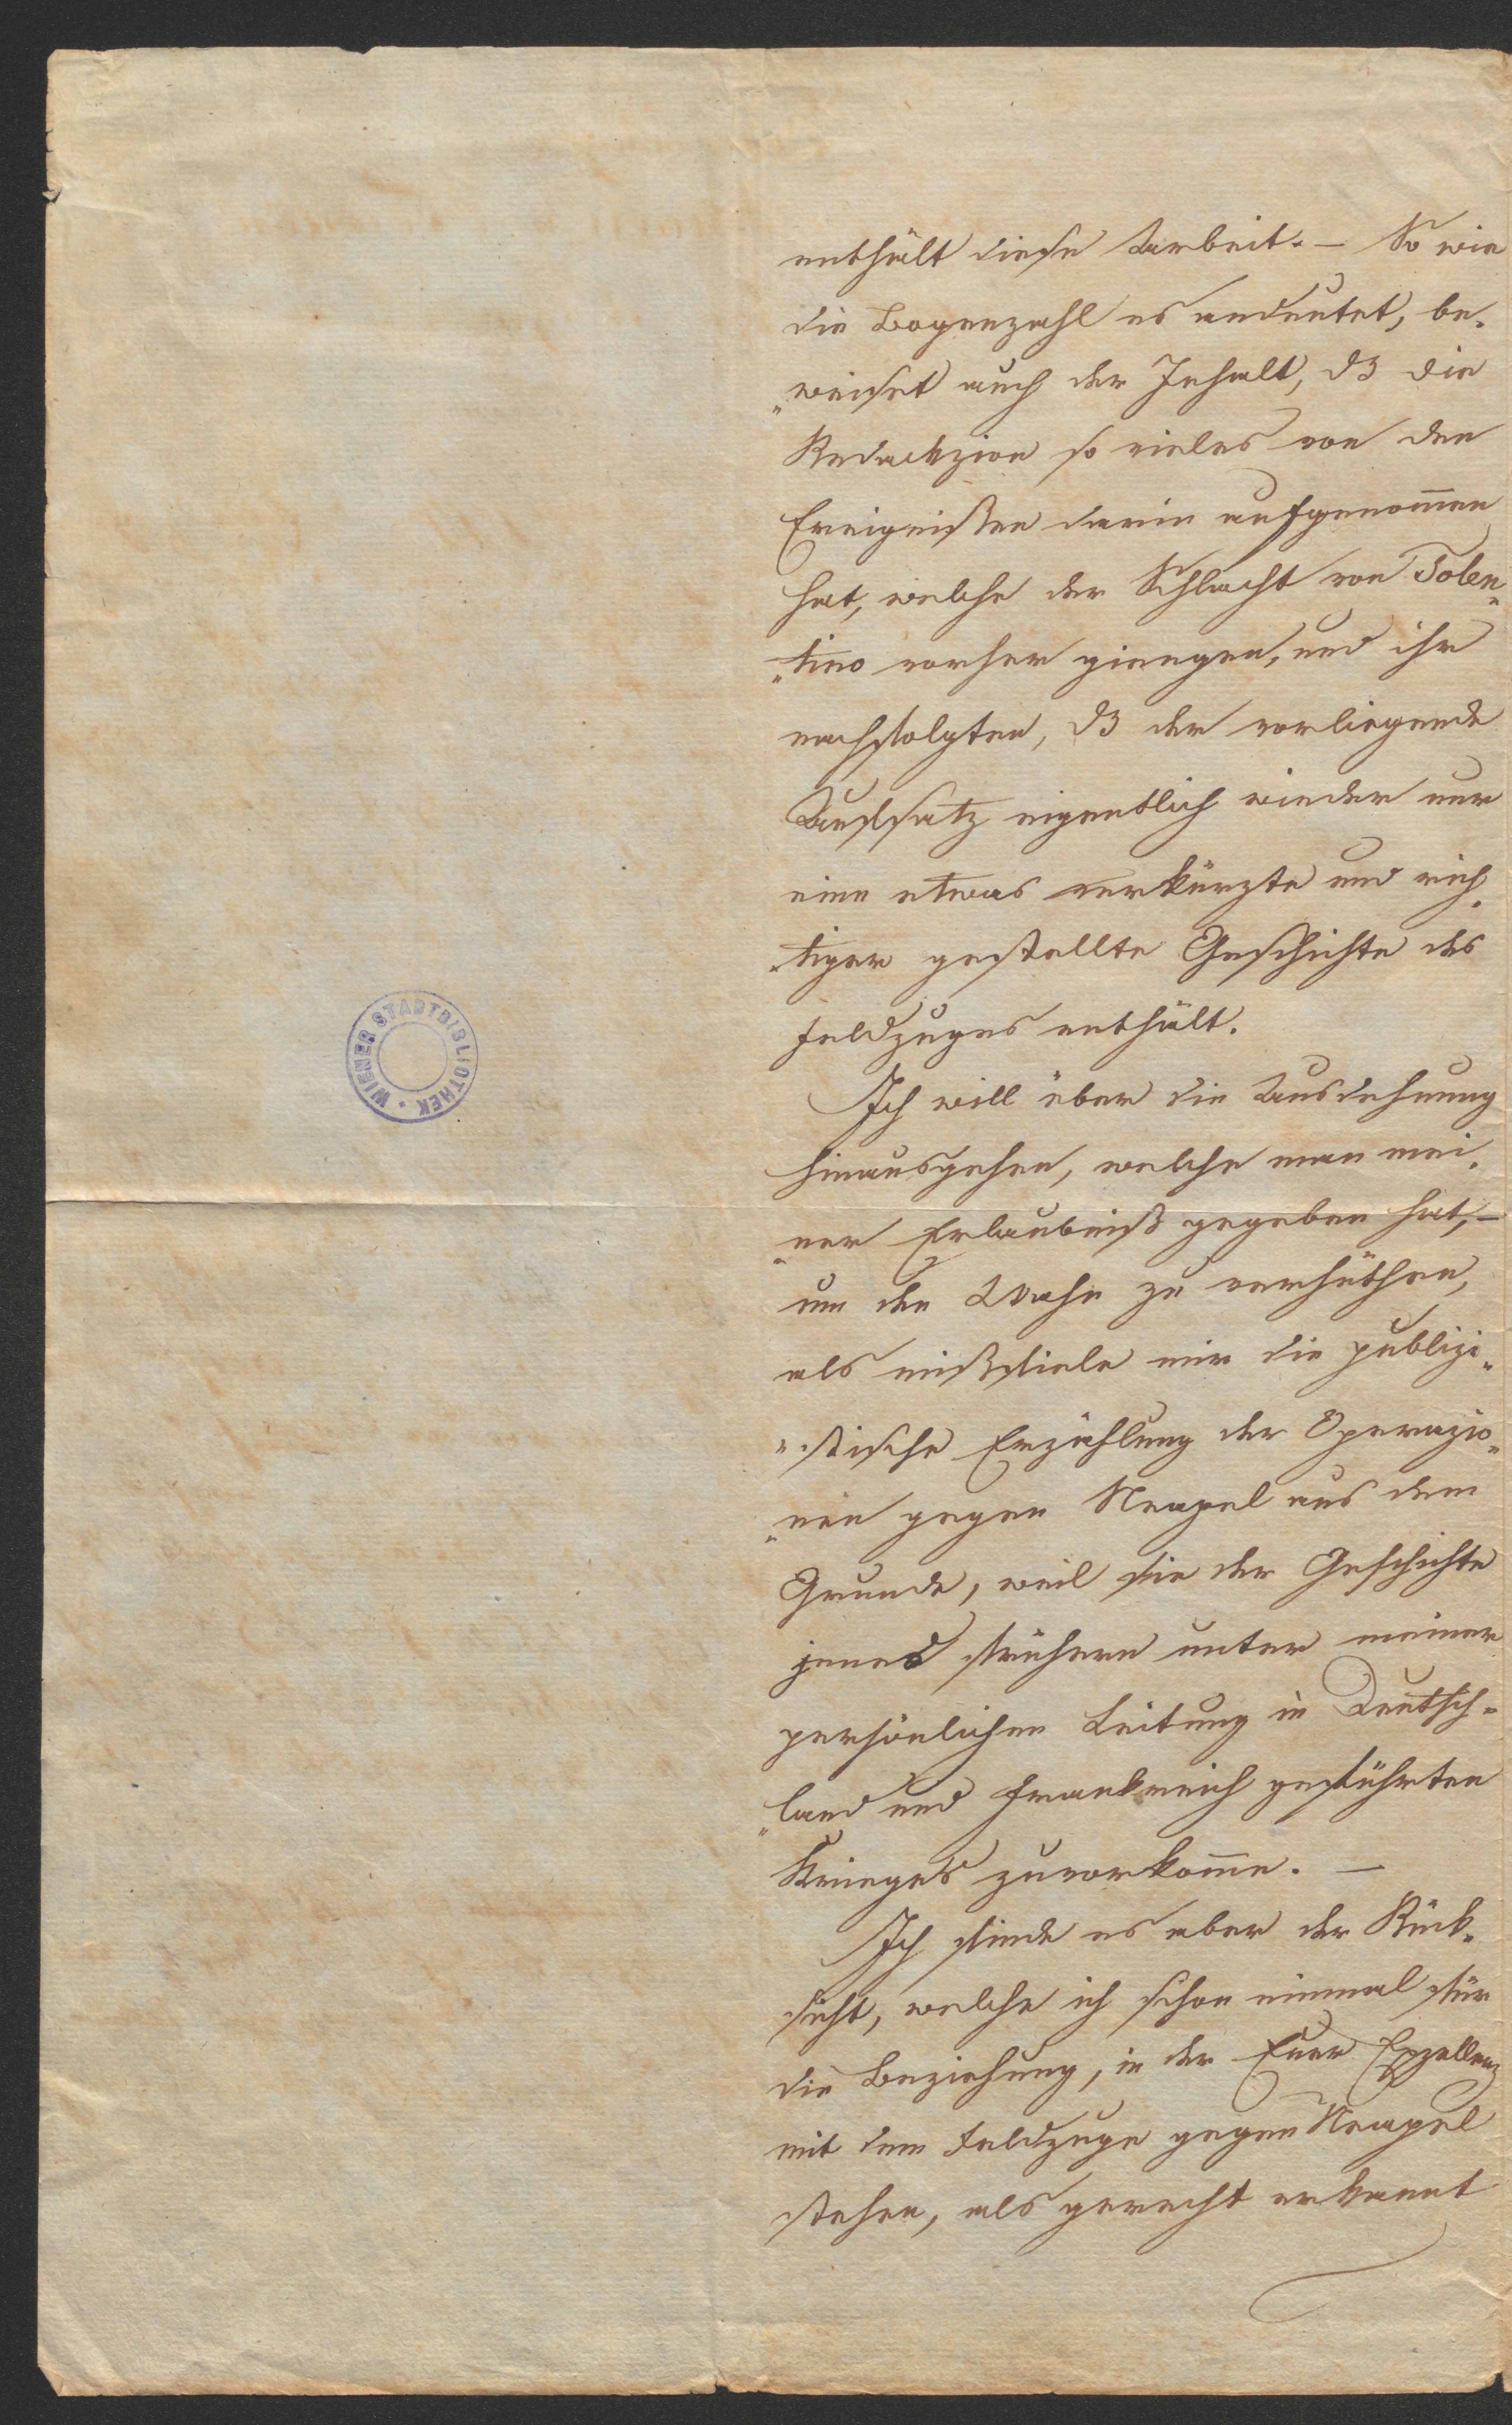 enthält diese Arbeit. – So wie
die Bogenzahl es andeutet, be-
"weiset auch der Inhalt, dß die
Redackzion so vieles von den
Ereignißen darin aufgenom̅en
hat, welche der Schlacht von Tolen-
"tino vorher giengen, und ihr
nachfolgten, dß der vorliegende
Aufsatz eigentlich wieder nur
eine etwas verkürzte und rich-
"tiger gestellte Geschichte des
Feldzuges enthält.
Ich will über die Ausdehnung
hinausgehen, welche man mei-
"ner Erlaubniß gegeben hat, –
um den Wahn zu verhüthen,
als mißfiele mir die publizi-
"stische Erzählung der Operazio-
"nen gegen Neapel aus dem
Grunde, weil sie der Geschichte
jenes frühern unter meiner
persönlichen Leitung in Deutsch-
"land und Frankreich geführten
Krieges zuvorkom̅e. –
Ich finde es aber der Rück-
sicht, welche ich schon einmal für
die Beziehung, in der Euer Exzellenz
mit dem Feldzuge gegen Neapel
stehen, als gerecht erkannt
WIENER STADTBIBLIOTHEK